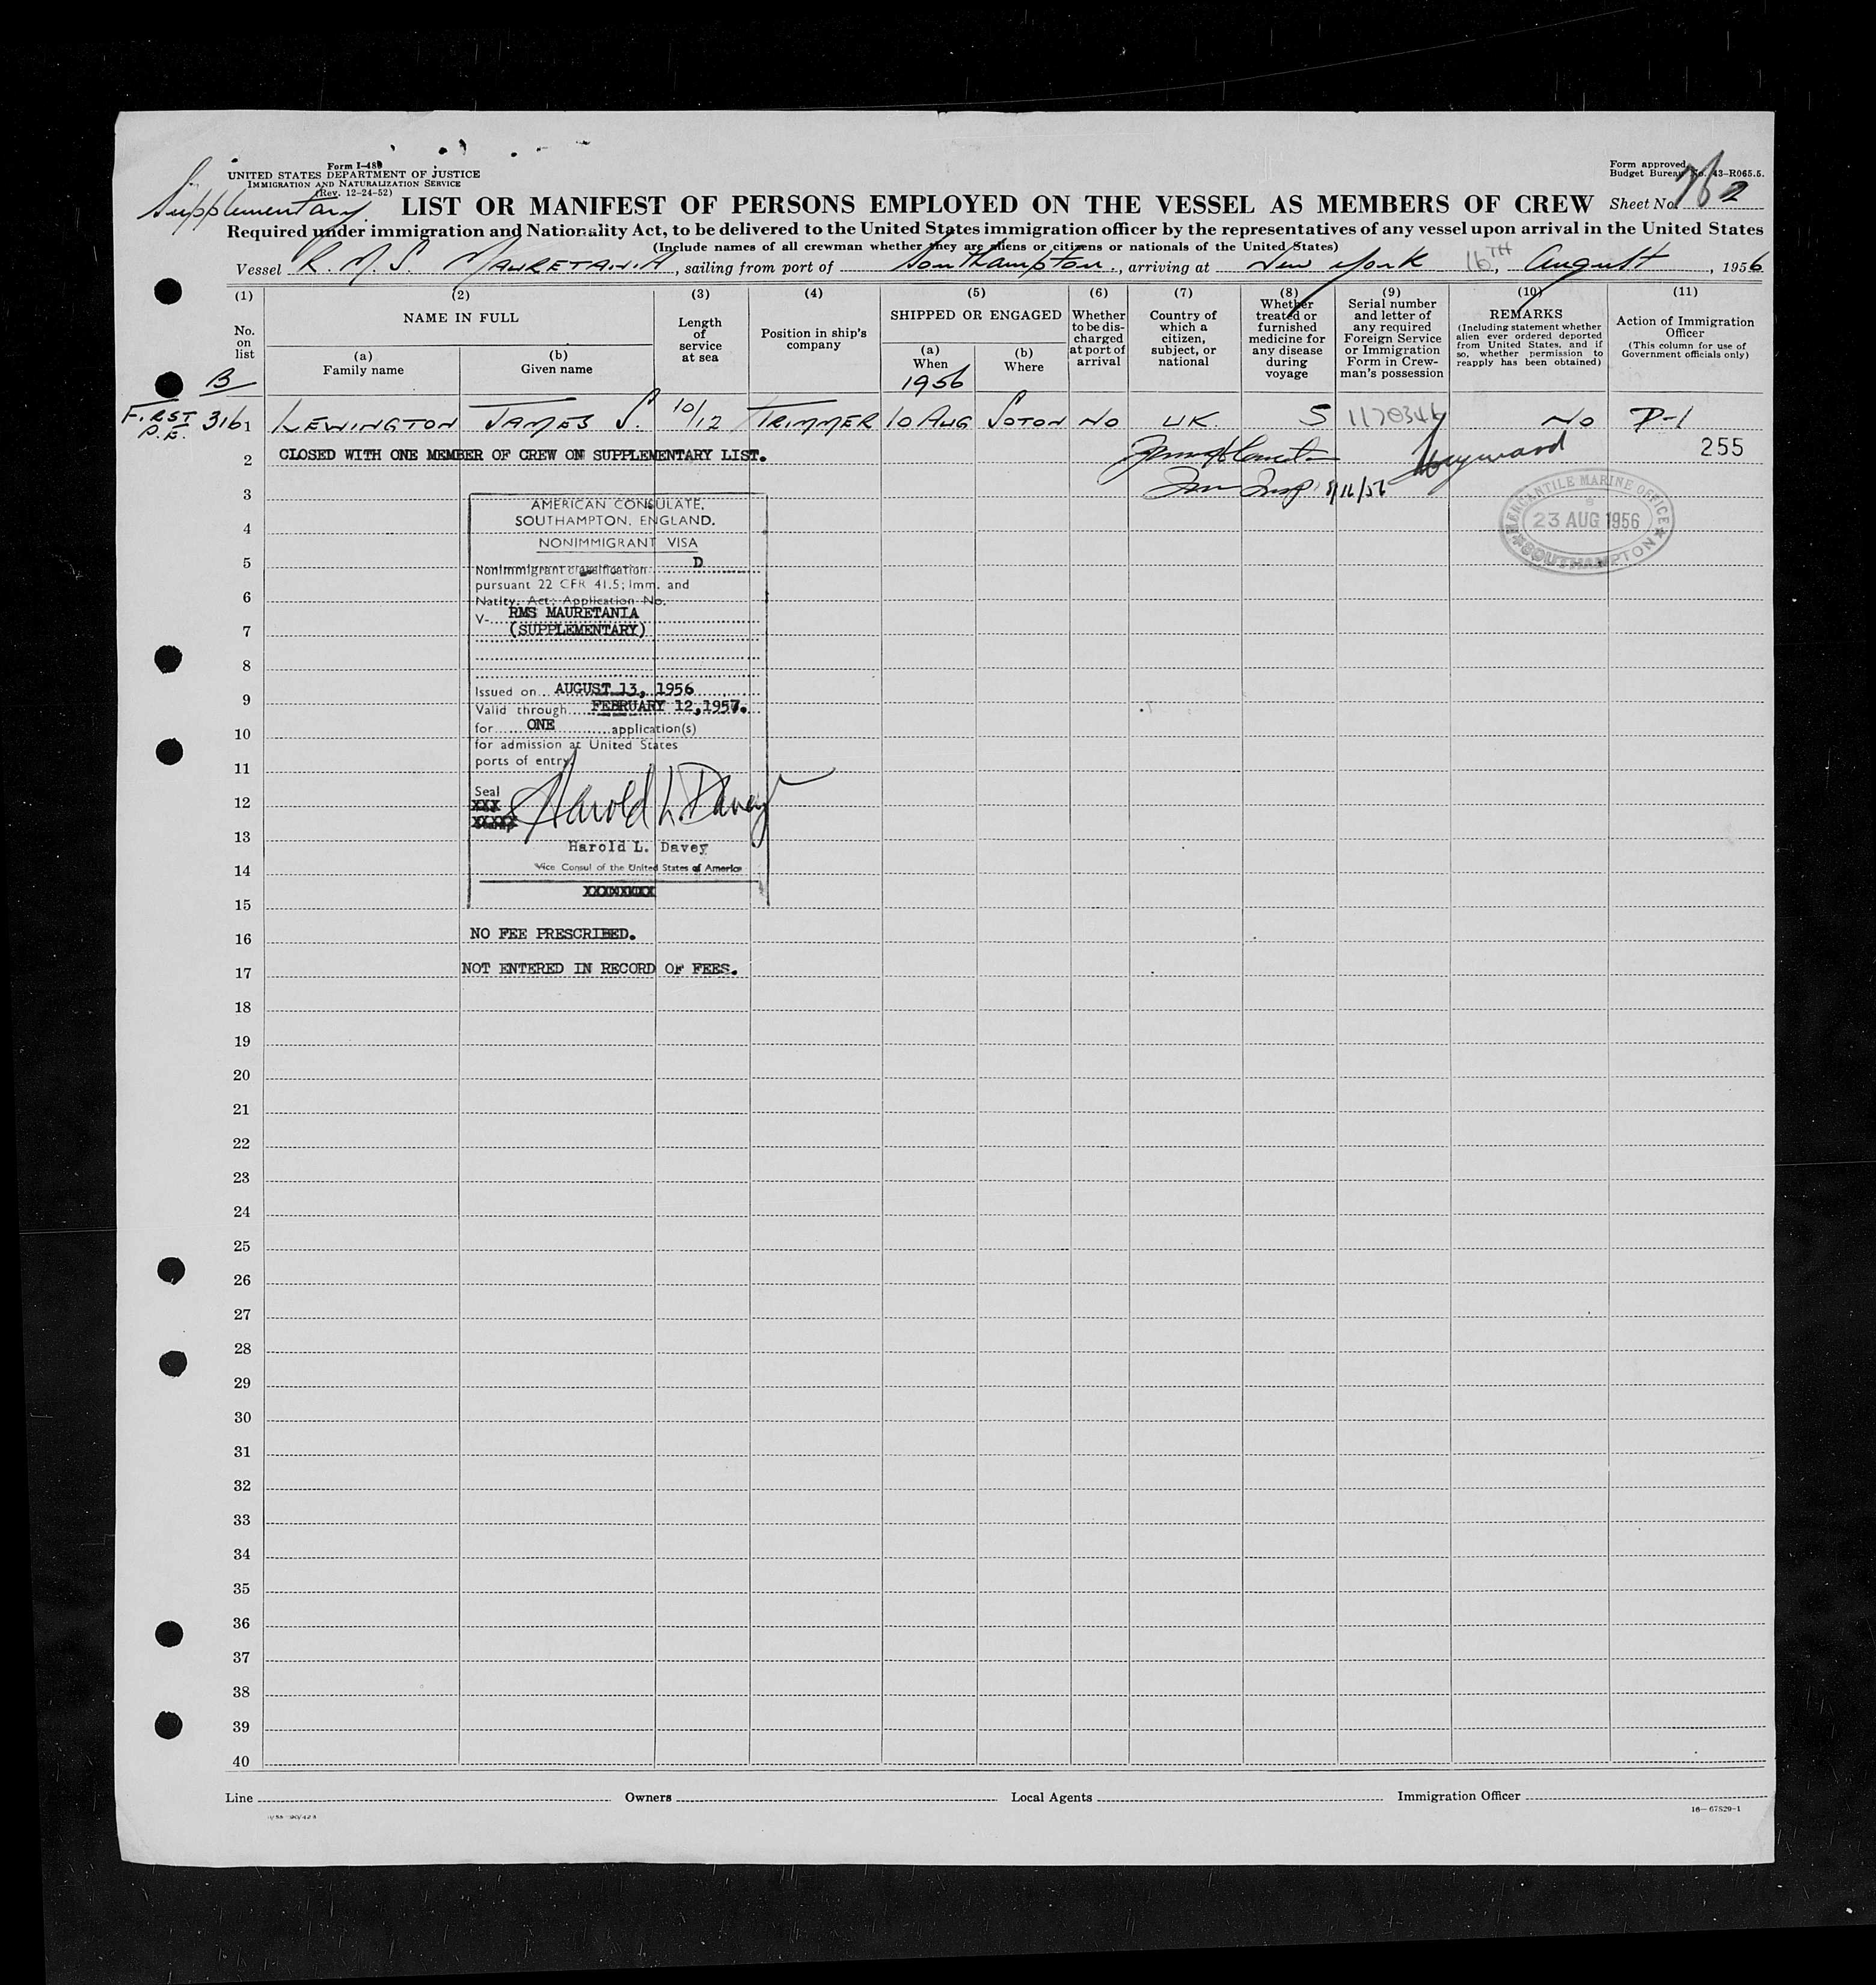 Form I-480
UNITED STATES DEPARTMENT OF JUSTICE
IMMIGRATION AND NATURALIZATION SERVICE
(Rev. 12-24-52)
Form approved
Budget Bureau No. 43-R065.5.
Supplementary.
LIST OR MANIFEST OF PERSONS EMPLOYED ON THE VESSEL AS MEMBERS OF CREW
Sheet No. 2
Required under immigration and Nationality Act, to be delivered to the United States immigration officer by the representatives of any vessel upon arrival in the United States
(Include names of all crewman whether they are aliens or citizens or nationals of the United States)
Vessel R. M. S. MAURETANIA, sailing from port of Southampton., arriving at New York 16TH, August, 1956
(1) (2) (3) (4) (5) (6) (7) (8) (9) (10) (11)
No. on list
NAME IN FULL
(a) Family name
(b) Given name
Length of service at sea
Position in ship's company
SHIPPED OR ENGAGED
(a) When
1956
(b) Where
Whether to be discharged at port of arrival
Country of which a citizen, subject, or national
Whether treated or furnished medicine for any disease during voyage
Serial number and letter of any required Foreign Service or Immigration Form in Crewman's possession
REMARKS
(Including statement whether alien ever ordered deported from United States, and if so, whether permission to reapply has been obtained)
Action of Immigration Officer
(This column for use of Government officials only)
B
FIRST P.E. 316 1 LEWINGTON JAMES S. 10/12 TRIMMER 10 AUG SOTON NO UK. 5 NO D-1
2 CLOSED WITH ONE MEMBER OF CREW ON SUPPLEMENTARY LIST. 255
8/16/56
3
AMERICAN CONSULATE,
SOUTHAMPTON, ENGLAND.
4
NONIMMIGRANT VISA
MERCANTILE MARINE OFFICE
23 AUG 1956
SOUTHAMPTON
5
Nonimmigrant classification D
pursuant 22 CFR 41.5; Imm. and
6
Natlty. Act; Application No.
V- RMS MAURETANIA
7
(SUPPLEMENTARY)
8
9
Issued on AUGUST 13, 1956
Valid through FEBRUARY 12, 1957.
10
for ONE application(s)
for admission at United States
11
ports of entry.
12
Seal
XXX
XXXXX
Harold L Davey
13
Harold L. Davey
14
Vice Consul of the United States of America
XXXXXXXX
15
16 NO FEE PRESCRIBED.
17 NOT ENTERED IN RECORD OF FEES.
18
19
20
21
22
23
24
25
26
27
28
29
30
31
32
33
34
35
36
37
38
39
40
Line Owners Local Agents Immigration Officer
16—67829-1